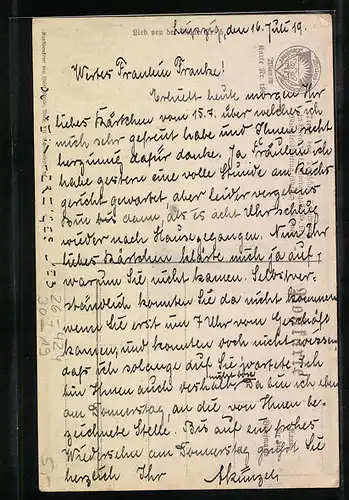 Leipzig, den 16. Juli 19.
Wertes Fräulein Franke!
Erhielt heute morgen Ihr
liebes Kärtchen vom 15.7. über welches ich
mich sehr gefreut habe und Ihnen recht
herzinnig dafür danke. Ja Fräulein ich
habe gestern eine volle Stunde am Reichs
gericht gewartet aber leider vergebens
Bin bis dann, als es acht Uhr schlug
wieder nach Hause gegangen. Nun Ihr
liebes Kärtchen klärte mich ja auf,
warum Sie nicht kamen. Selbstver-
ständlich konnten Sie da nicht kommen
wenn Sie erst um 7 Uhr vom Geschäft
kamen, und konnten doch nicht wissen
daß ich solange auf Sie wartete. Ich
bin Ihnen auch deshalb
nicht böse
Da bin ich eben
am Donnerstag an die von Ihnen be-
zeichnete Stelle. Bis auf ein frohes
Wiedersehn am Donnerstag grüßt Sie
herzlich Ihr A Künzel
Lied von der